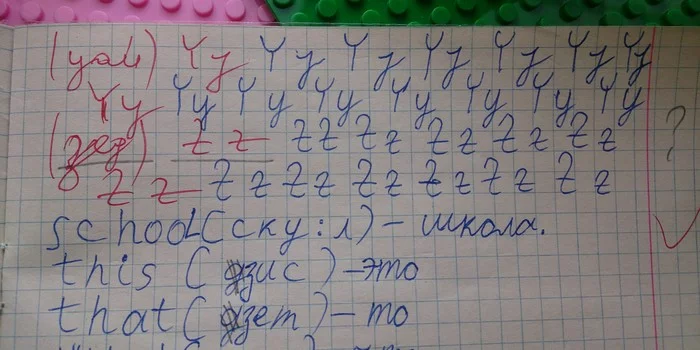 (уай) Yy Yy Yy Yy Yy Yy Yy
Yy Yy Yy Yy Yy Yy Yy Yy
(зед) Zz Zz Zz Zz Zz Zz
Zz Zz Zz Zz Zz Zz Zz
school (ску:л) – школа.
this (зис) – это
that (зет) – то
?